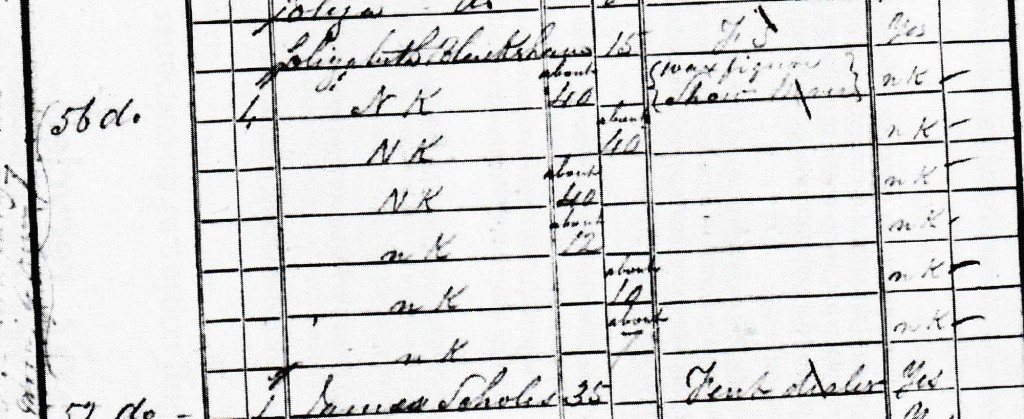 Eliza do
Elizabeth Blackshaw 15 F S Yes
56 do. 1 N K about 40 {wax figure Show Man} n K
N K about 40 n K
N K about 40 n K
n K about 12 n K
n K about 10 n K
n K about 7 n K
57 do - 1 James Scholes 35 Fent dealer Yes